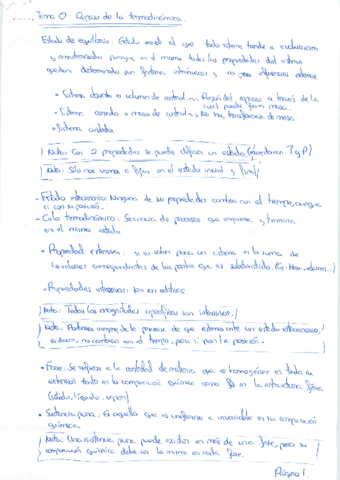 Tema 0: Repaso de la termodinámica.
Estado de equilibrio: Estado al que todo sistema tiende a evolucionar
y caracterizado porque en el mismo todas las propiedades del sistema
quedan determinadas por factores intrínsecos y no por influencias externas
• Sistema abierto o volumen de control → Región del espacio a través de la
cual puede fluir masa.
• Sistema cerrado o masa de control → No hay transferencia de masa.
• Sistema aislado.
Nota: Con 2 propiedades se puede definir un estado (T y P)
Nota: Sólo nos vamos a fijar en el estado inicial y final
- Estado estacionario: Ninguna de sus propiedades cambia con el tiempo, aunque
sí con su posición.
- Ciclo termodinámico: Secuencia de procesos que empieza y termina
en el mismo estado.
• Propiedad extensiva: si su valor para un sistema es la suma de
los valores correspondientes de las partes en que es subdividido. (Ej: Masa, volumen..)
• Propiedades intensivas: No son aditivas.
Nota: Todas las magnitudes específicas son intensivas.
Nota: Partimos siempre de la premisa de que estamos ante un estado estacionario,
es decir, no cambian con el tiempo, pero sí por la posición.
• Fase: Se refiere a la cantidad de materia que es homogénea en toda su
extensión tanto en la composición química como en la estructura física
(sólido, líquido, vapor)
• Sustancia pura: Es aquella que es uniforme e invariable en su composición
química.
Nota: Una sustancia pura puede existir en más de una fase, pero su
composición química debe ser la misma en cada fase.
Página 1